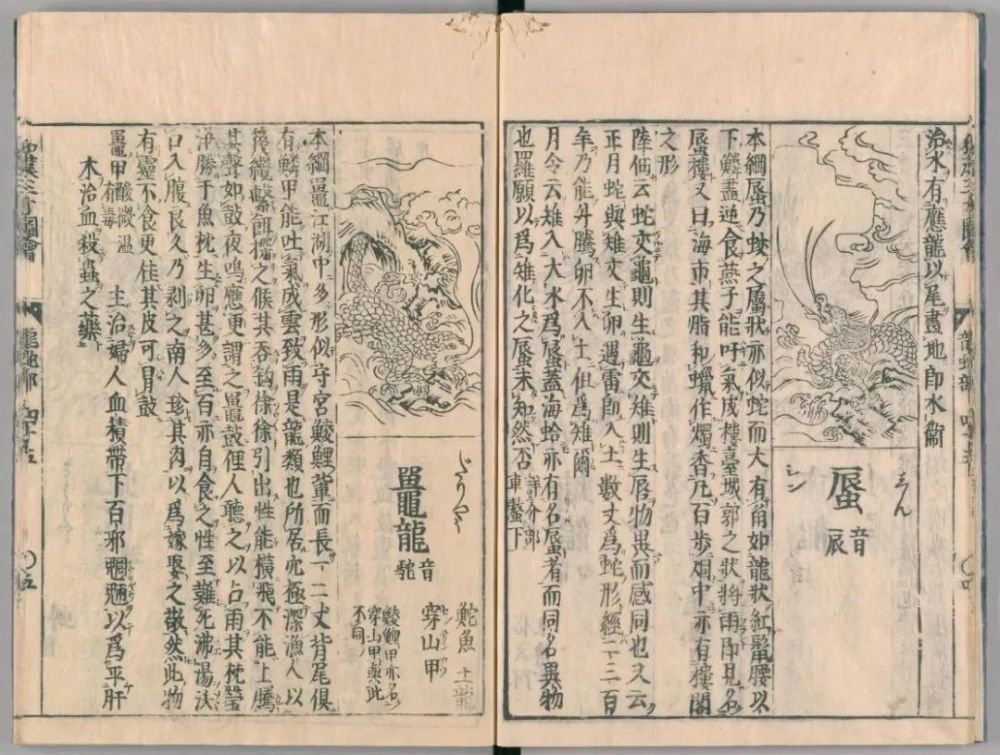 治水有應龍以尾畫地即水衜
しん
蜃 音辰
シン
本綱蜃乃蛟之屬狀亦似蛇而大有角如龍狀紅鬣腰以
下鱗盡逆食燕子能吁氣成樓臺城郭之狀將雨即見名
蜃樓又曰海市其脂和蠟作燭香凡百步烟中亦有樓閣
之形
陸佃云蛇交龜則生龜交雉則生蜃物異而感同也又云
正月蛇與雉交生卵遇雷即入土數丈爲蛇形經二三百
年乃能升騰卵不入土但爲雉爾
月令云雉入大水爲蜃蓋海蛤亦有名蜃者而同名異物
也羅願以爲雉化之蜃未知然否 詳介部車螯下
鼉龍 音駝
鮀魚 土龍
穿山甲
鯪鯉甲亦名穿山甲與此不同
本綱鼉江湖中多形似守宮鯪鯉輩而長一二丈背尾俱
有鱗甲能吐氣成雲致雨是龍類也所居穴極深漁人以
篾纜繫餌探之候其吞鈎徐徐引出性能橫飛不能上騰
其聲如鼓夜鳴應更謂之鼉鼓俚人聽之以占雨其枕瑩
淨勝于魚枕生卵甚多至百亦自食之性至難死沸湯沃
口入腹良久乃剥之南人珍其肉以爲嫁娶之敬然此物
有靈不食更佳其皮可冒鼓
鼉甲 酸微溫有毒 主治婦人血積帶下百邪魍魎以爲平肝
木治血殺蟲之藥
龍蛇部 四十五
〇五